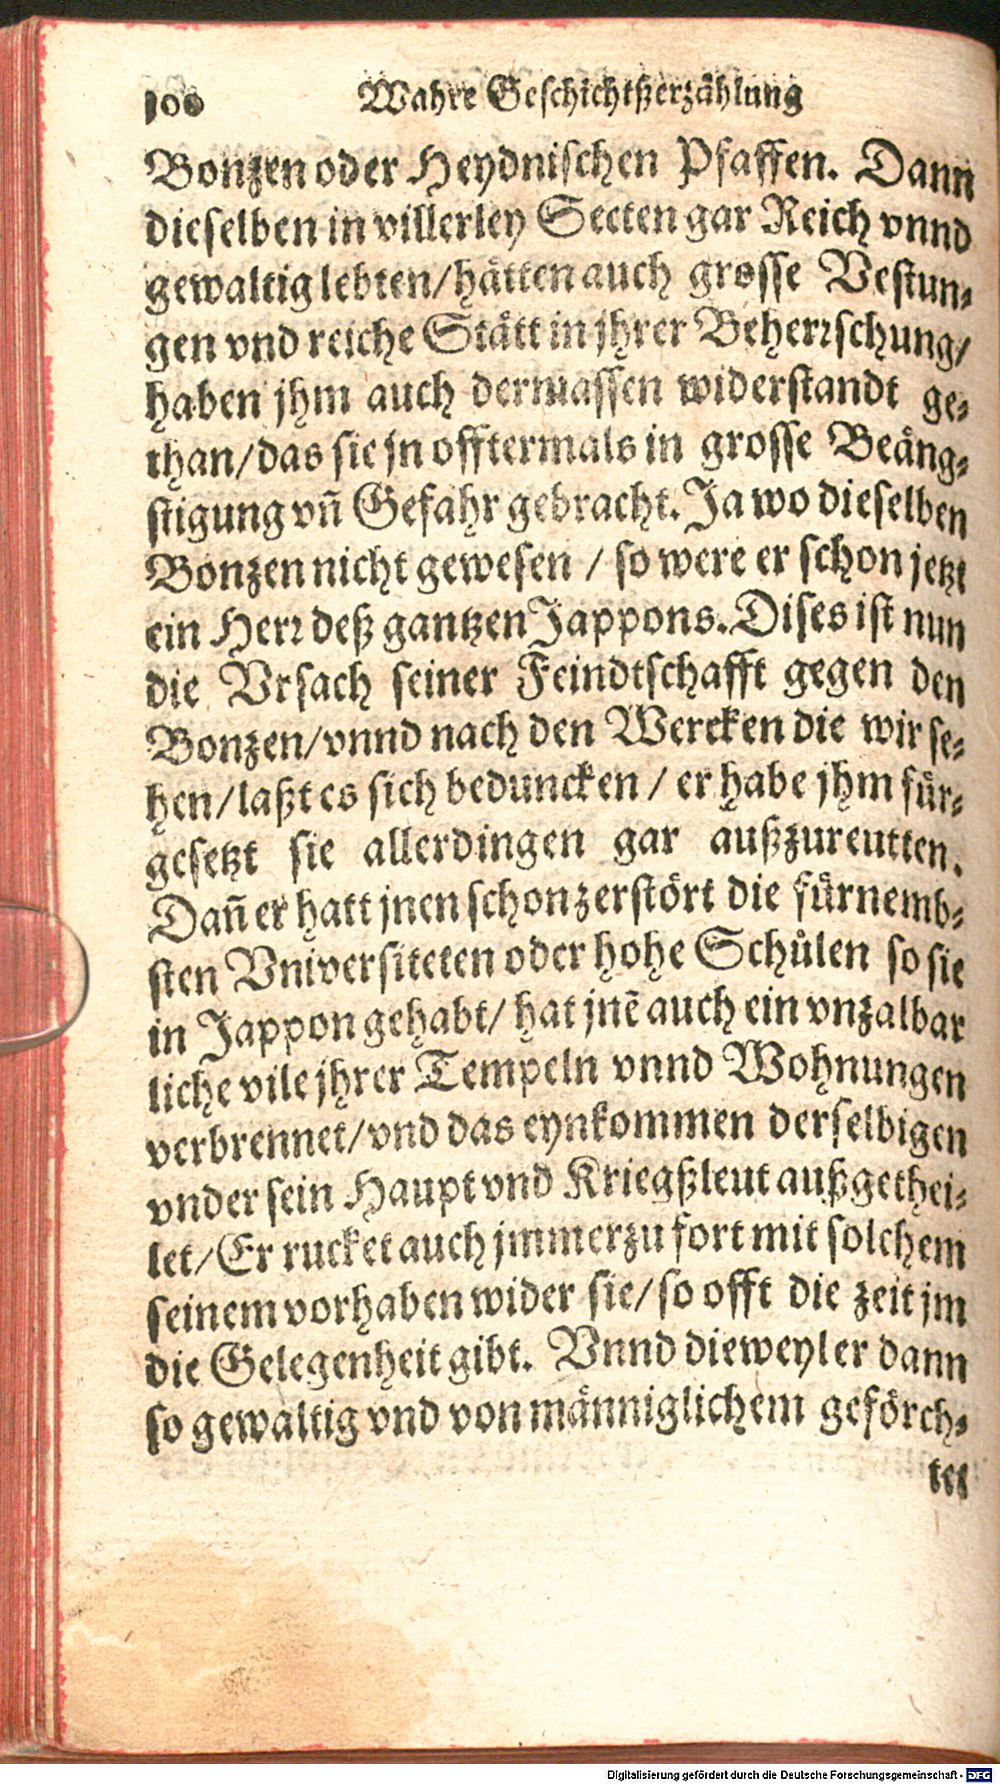 100 Wahre Geschichtßerzählung
Bonzen oder Heydnischen Pfaffen. Dann
dieselben in villerley Secten gar Reich vnnd
gewaltig lebten/ hätten auch grosse Vestun⸗
gen vnd reiche Stätt in jhrer Beherꝛschung/
haben jhm auch dermassen widerstandt ge⸗
than/ das sie jn offtermals in grosse Beäng⸗
stigung vñ Gefahr gebracht. Ja wo dieselben
Bonzen nicht gewesen / so were er schon jetzt
ein Herꝛ deß gantzen Jappons. Dises ist nun
die Vrsach seiner Feindtschafft gegen den
Bonzen/ vnnd nach den Wercken die wir se⸗
hen/ laßt es sich beduncken / er habe jhm für⸗
gesetzt sie allerdingen gar außzureutten.
Dañ er hatt jnen schon zerstört die fürnemb⸗
sten Vniversiteten oder hohe Schůlen so sie
in Jappon gehabt/ hat jnẽ auch ein vnzalbar
liche vile jhrer Tempeln vnnd Wohnungen
verbrennet/ vnd das eynkommen derselbigen
vnder sein Haupt vnd Kriegßleut außgethei⸗
let/ Er rucket auch jmmerzu fort mit solchem
seinem vorhaben wider sie/ so offt die zeit jm
die Gelegenheit gibt. Vnnd dieweyl er dann
so gewaltig vnd von männiglichem geförch⸗
tet
Digitalisierung gefördert durch die Deutsche Forschungsgemeinschaft - DFG